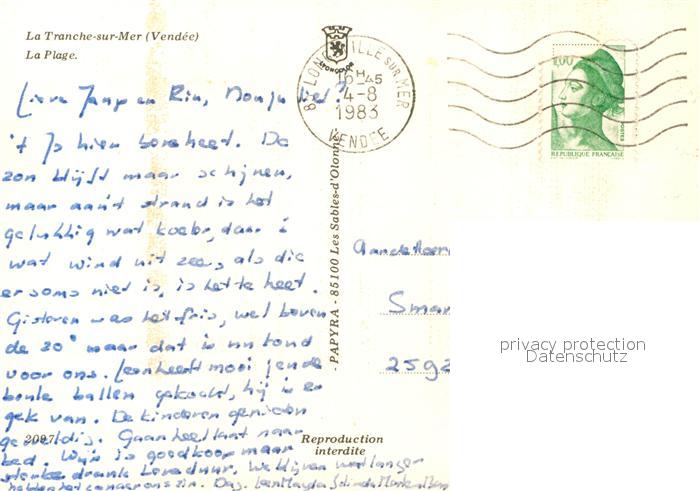 La Tranche-sur-Mer (Vendée)
La Plage.
Lieve Jaap en Rin,
't Is hier bere heet. De
zon blijft maar schijnen,
maar aan't strand is het
gelukkig wat koeler, daar is
wat wind uit zee, als die
er soms niet is, is het te heet.
Gisteren was het fris, wel boven
de 20° maar dat is
voor ons. Leon heeft mooi
boule ballen gekocht, hij is er
gek van. De kinderen genieten
geweldig. Gaan heel laat naar
bed. Wijn is goedkoop maar
sterke drank bereduur. We blijven wat langer
Dag. Leon
2097
APOLLONCOLOR
OLONNE SUR MER
16H45
4-8
1983
VENDEE
1,00
POSTES
REPUBLIQUE FRANÇAISE
PAPYRA - 85100 Les Sables-d'Olonne
Smar
2592
Reproduction
interdite
privacy protection
Datenschutz